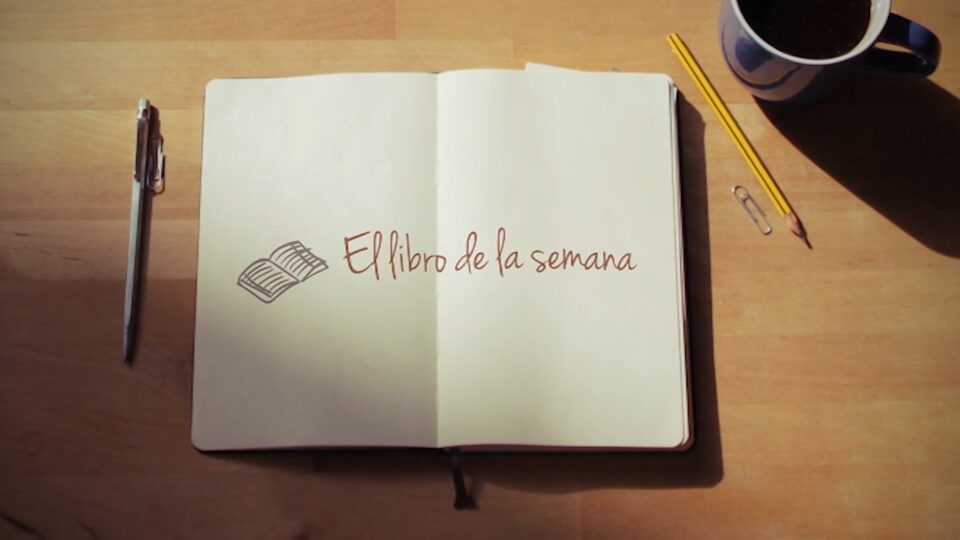 El libro de la semana